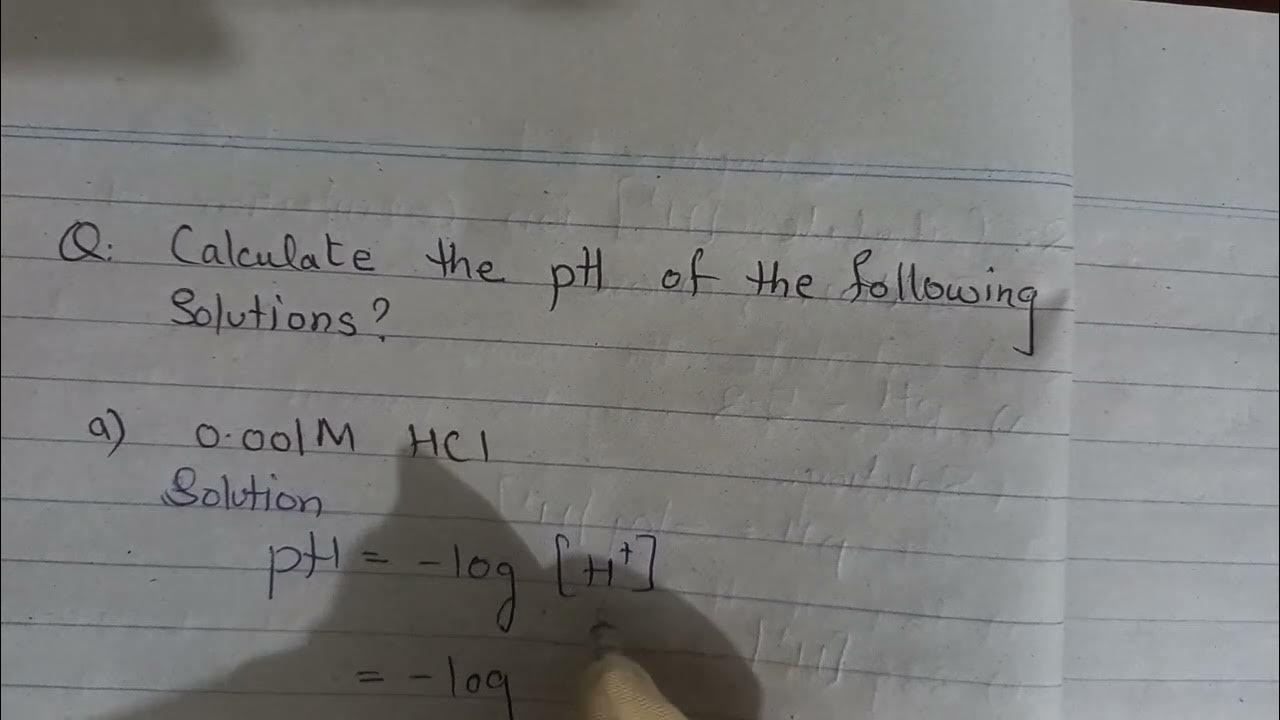 Q. Calculate the pH of the following
Solutions?
a) 0.001M HCl
Solution
pH = -log [H⁺]
= -log